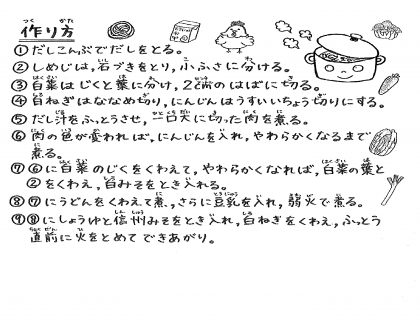 作り方
つく かた
①だしこんぶでだしをとる。
②しめじは,石づきをとり,小ふさに分ける。
③白菜はじくと葉に分け,2cmのはばに切る。
④白ねぎはななめ切り,にんじんはうすいいちょう切りにする。
⑤だし汁をふっとうさせ,一口大に切った肉を煮る。
⑥肉の色が変われば,にんじんを入れ,やわらかくなるまで
煮る。
⑦⑥に白菜のじくをくわえて,やわらかくなれば,白菜の葉と
②をくわえ,白みそをとき入れる。
⑧⑦にうどんをくわえて煮,さらに豆乳を入れ,弱火で煮る。
⑨⑧にしょうゆと信州みそをとき入れ,白ねぎをくわえ,ふっとう
直前に火をとめてできあがり。